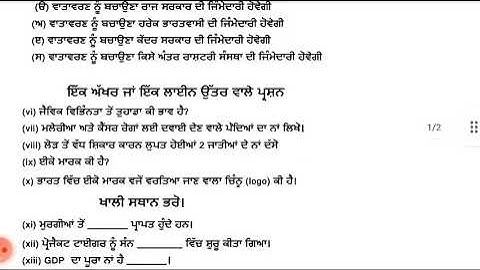 (ੳ) ਵਾਤਾਵਰਣ ਨੂੰ ਬਚਾਉਣਾ ਰਾਜ ਸਰਕਾਰ ਦੀ ਜਿੰਮੇਦਾਰੀ ਹੋਵੇਗੀ
(ਅ) ਵਾਤਾਵਰਣ ਨੂੰ ਬਚਾਉਣਾ ਹਰੇਕ ਭਾਰਤਵਾਸੀ ਦੀ ਜਿੰਮੇਦਾਰੀ ਹੋਵੇਗੀ
(ੲ) ਵਾਤਾਵਰਣ ਨੂੰ ਬਚਾਉਣਾ ਕੇਂਦਰ ਸਰਕਾਰ ਦੀ ਜਿੰਮੇਦਾਰੀ ਹੋਵੇਗੀ
(ਸ) ਵਾਤਾਵਰਣ ਨੂੰ ਬਚਾਉਣਾ ਕਿਸੇ ਅੰਤਰ ਰਾਸ਼ਟਰੀ ਸੰਸਥਾ ਦੀ ਜਿੰਮੇਦਾਰੀ ਹੋਵੇਗੀ
ਇੱਕ ਅੱਖਰ ਜਾਂ ਇੱਕ ਲਾਈਨ ਉੱਤਰ ਵਾਲੇ ਪ੍ਰਸ਼ਨ
(vi) ਜੈਵਿਕ ਵਿਭਿੰਨਤਾ ਤੋਂ ਤੁਹਾਡਾ ਕੀ ਭਾਵ ਹੈ?
(vii) ਮਲੇਰੀਆ ਅਤੇ ਕੈਂਸਰ ਰੋਗਾਂ ਲਈ ਦਵਾਈ ਦੇਣ ਵਾਲੇ ਪੌਦਿਆਂ ਦਾ ਨਾਂ ਲਿਖੋ।
1/2
(viii) ਲੋੜ ਤੋਂ ਵੱਧ ਸ਼ਿਕਾਰ ਕਾਰਨ ਲੁਪਤ ਹੋਈਆਂ 2 ਜਾਤੀਆਂ ਦੇ ਨਾਂ ਦੱਸੋ
(ix) ਈਕੋ ਮਾਰਕ ਕੀ ਹੈ?
(x) ਭਾਰਤ ਵਿੱਚ ਈਕੋ ਮਾਰਕ ਵਜੋਂ ਵਰਤਿਆ ਜਾਣ ਵਾਲਾ ਚਿੰਨ੍ਹ (logo) ਕੀ ਹੈ।
ਖਾਲੀ ਸਥਾਨ ਭਰੋ।
(xi) ਮੁਰਗੀਆਂ ਤੋਂ ________ ਪ੍ਰਾਪਤ ਹੁੰਦੇ ਹਨ।
(xii) ਪ੍ਰੋਜੈਕਟ ਟਾਈਗਰ ਨੂੰ ਸੰਨ ________ ਵਿੱਚ ਸ਼ੁਰੂ ਕੀਤਾ ਗਿਆ।
(xiii) GDP ਦਾ ਪੂਰਾ ਨਾਂ ਹੈ ________।